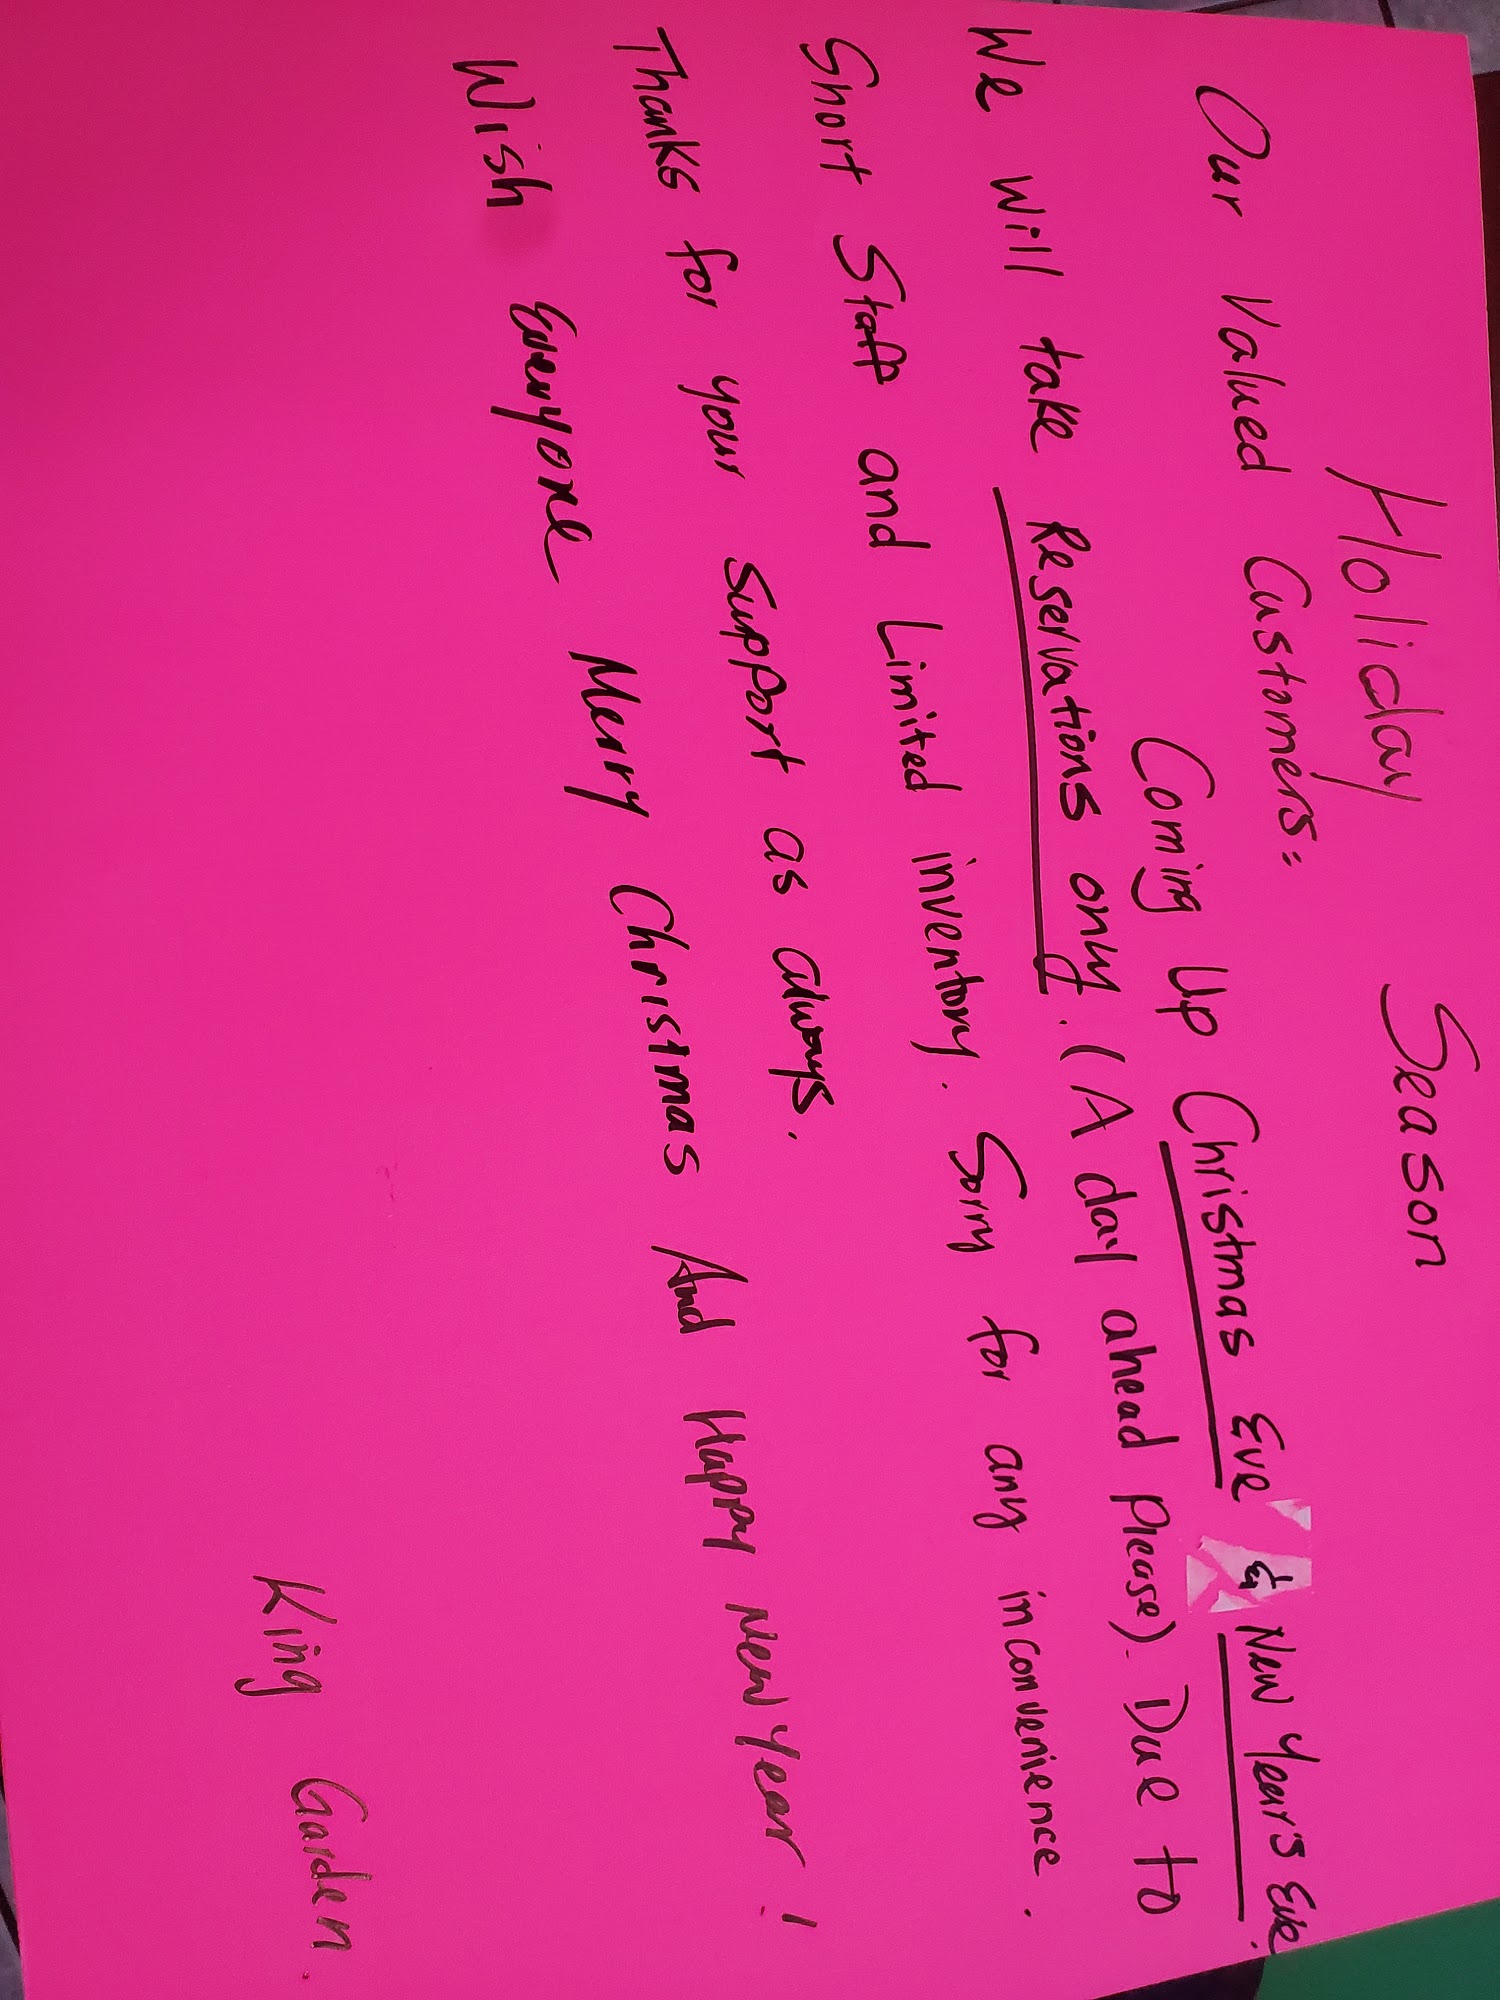 Holiday Season
Our Valued Customers:
Coming Up Christmas Eve & New Year's Eve.
We Will take Reservations only. (A day ahead Please). Due to
Short Staff and Limited inventory. Sorry for any inconvenience.
Thanks for your Support as always.
Wish Everyone Merry Christmas And Happy New Year!
King Garden.